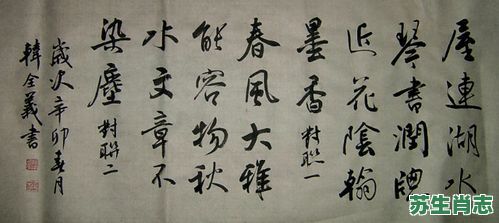 屋連湖水
琴書潤牕
近花陰翰
墨香 對聯一
春風大雅
能容物秋
水文章不
染塵 對聯二
歲次辛卯春月
韓全義書
苏生肖志